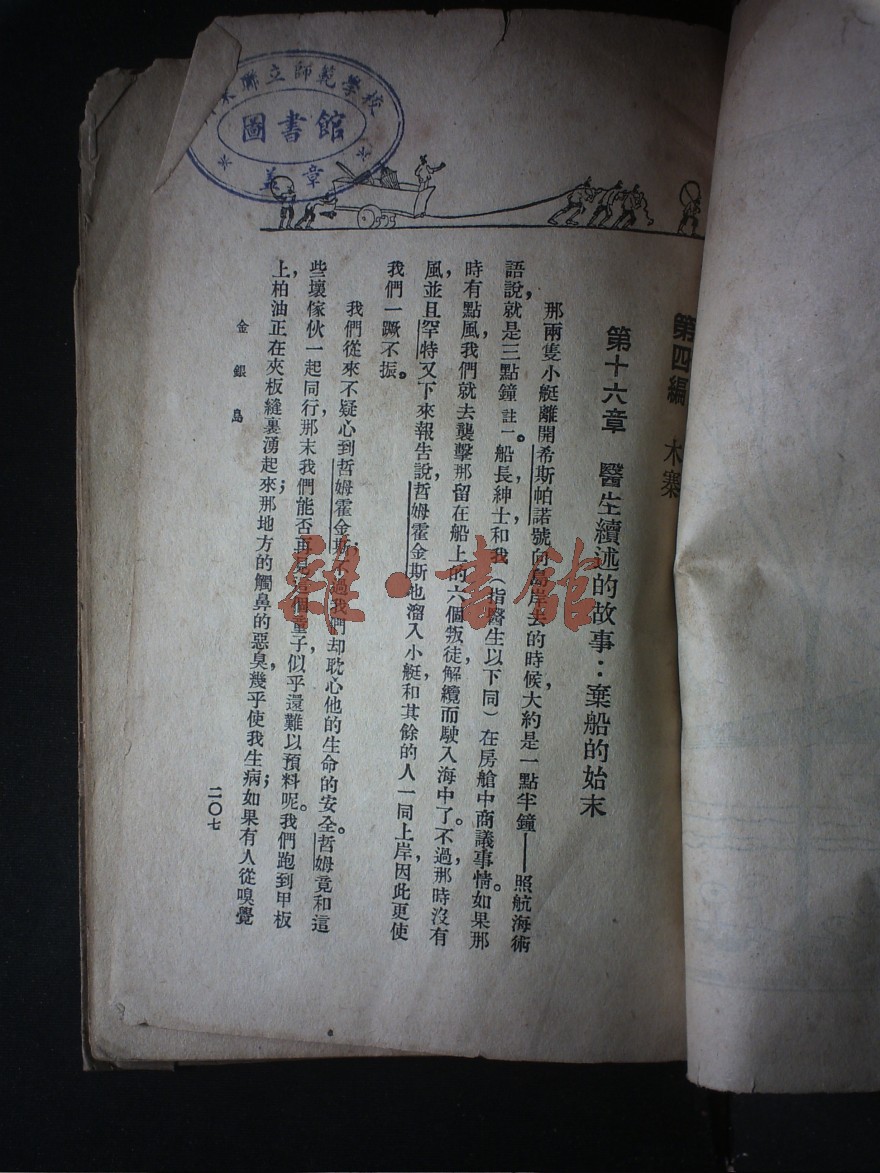 聯立師範學校
圖書館
章
第四編 木寨
第十六章 醫生續述的故事：棄船的始末
那兩隻小艇離開希斯帕諾號向島岸去的時候，大約是一點半鐘——照航海術
語說，就是三點鐘註一。船長，紳士和我（指醫生以下同）在房艙中商議事情。如果那
時有點風，我們就去襲擊那留在船上的六個叛徒，解纜而駛入海中了。不過，那時沒有
風，並且罕特又下來報告說，哲姆霍金斯也溜入小艇，和其餘的人一同上岸，因此更使
我們一蹶不振。
我們從來不疑心到哲姆霍金斯；不過我們却耽心他的生命的安全。哲姆竟和這
些壞傢伙一起同行，那末我們能否再見這個童子，似乎還難以預料呢。我們跑到甲板
上，柏油正在夾板縫裏湧起來；那地方的觸鼻的惡臭，幾乎使我生病；如果有人從嗅覺
金銀島
二〇七
雜·書館